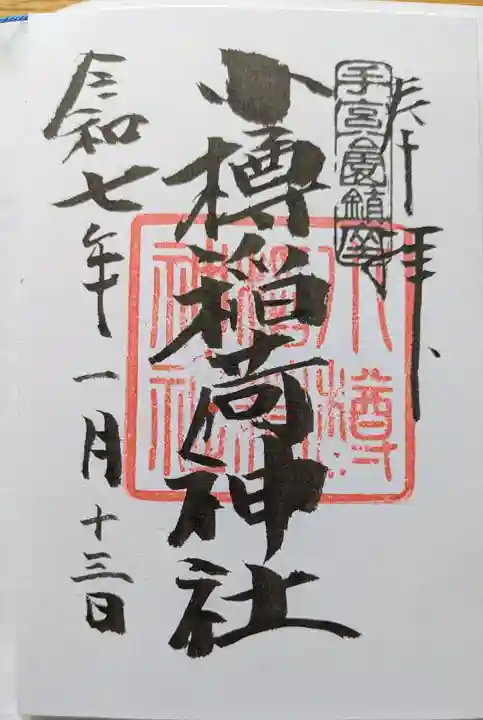 奉拝
手宮公園鎮座
小樽稲荷神社
小樽
稲荷
神社
令和七年一月十三日